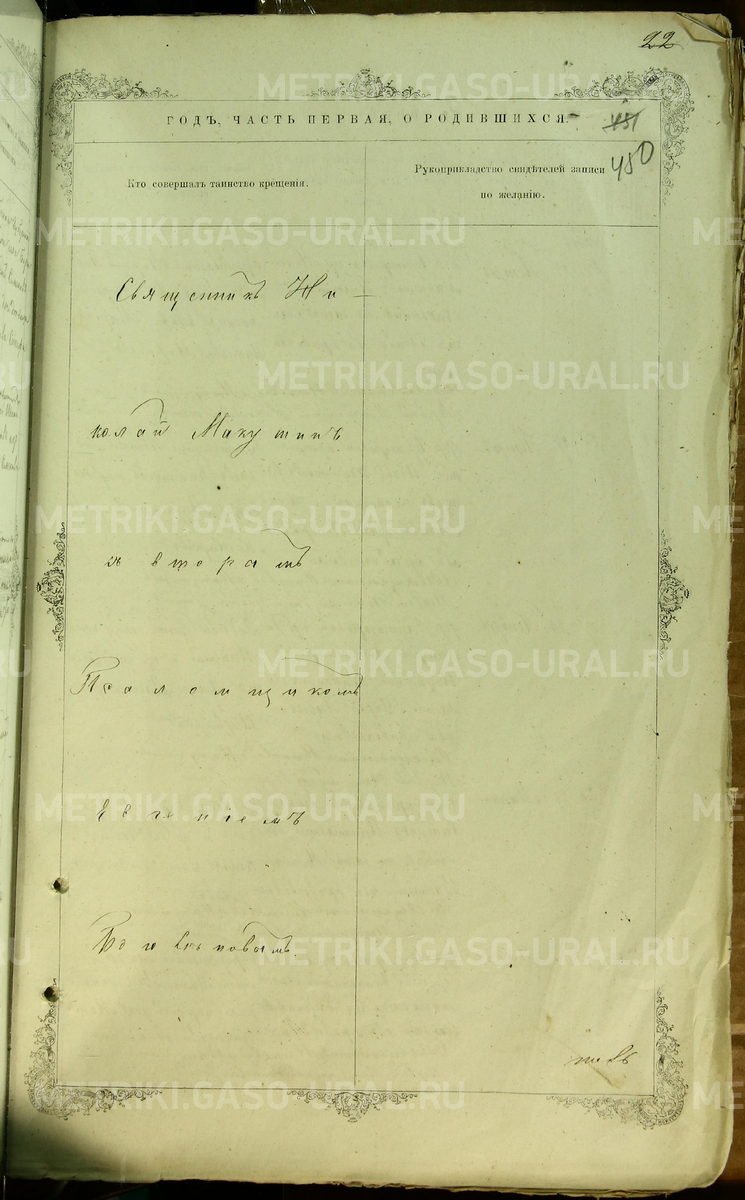 22
ГОДЪ, ЧАСТЬ ПЕРВАЯ, О РОДИВШИХСЯ.
451
450
Кто совершалъ таинство крещенія.
Рукоприкладство свидѣтелей записи
по желанію.
Священникъ Ни-
колай Макушинъ
и вторымъ
Псаломщикомъ
Евгеніемъ
METRIKI.GASO-URAL.RU